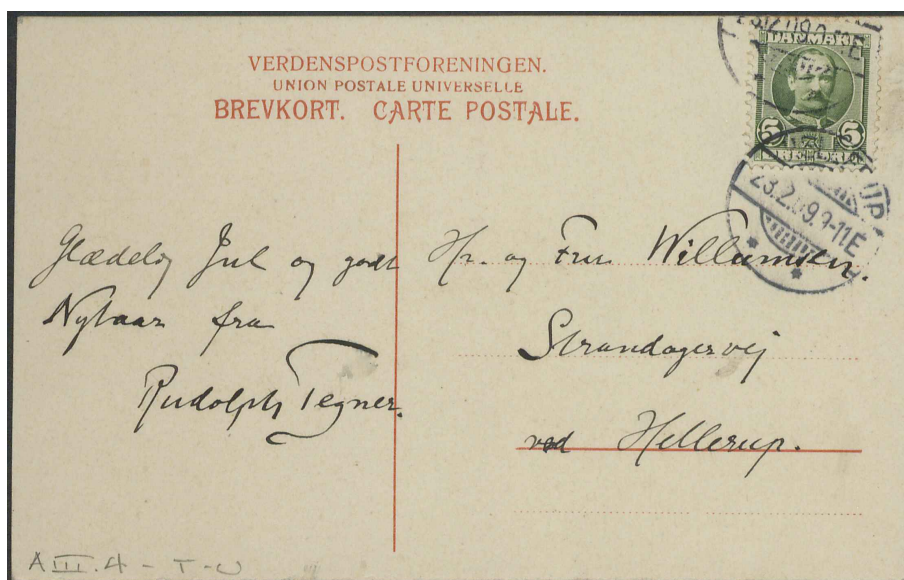 VERDENSPOSTFORENINGEN.
UNION POSTALE UNIVERSELLE
BREVKORT. CARTE POSTALE.
DANMARK
5 5
23.2.09.9-11E
Glædelig Jul og godt
Nytaar fra
Rudolph Tegner.
Hr. og Fru Willumsen.
Strandagervej
ved Hellerup.
A III.4 - T-W